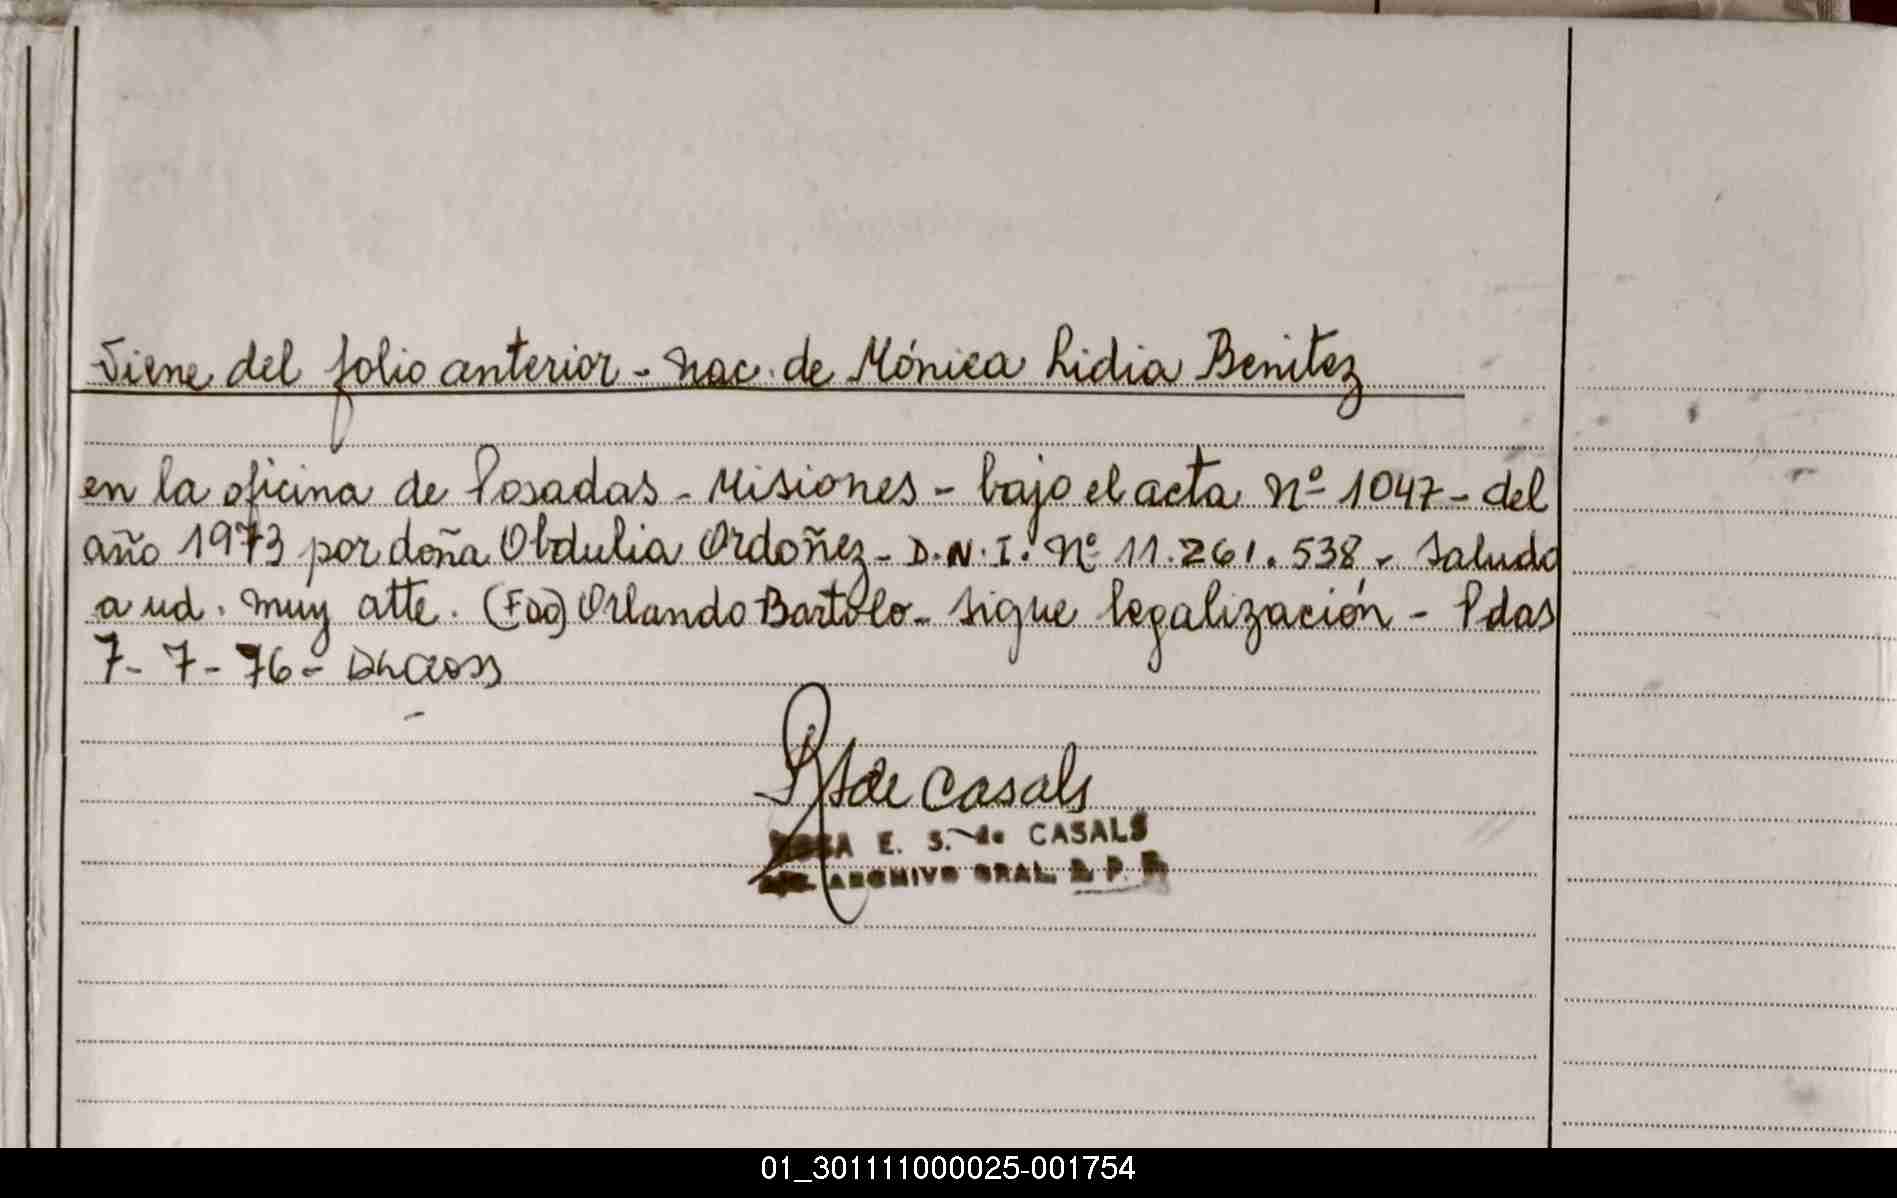 Viene del folio anterior - Nac. de Mónica Lidia Benitez
en la oficina de Posadas - Misiones - bajo el acta Nº 1047 - del
año 1973 por doña Obdulia Ordoñez - D.N.I. Nº 11.261.538 - Saludo
a ud. muy atte. (Fdo) Orlando Bartolo - Sigue legalización - Pdas
7-7-76-
de Casals
E. S. de CASALS
ARCHIVO GRAL. R. P. P.
01_301111000025-001754